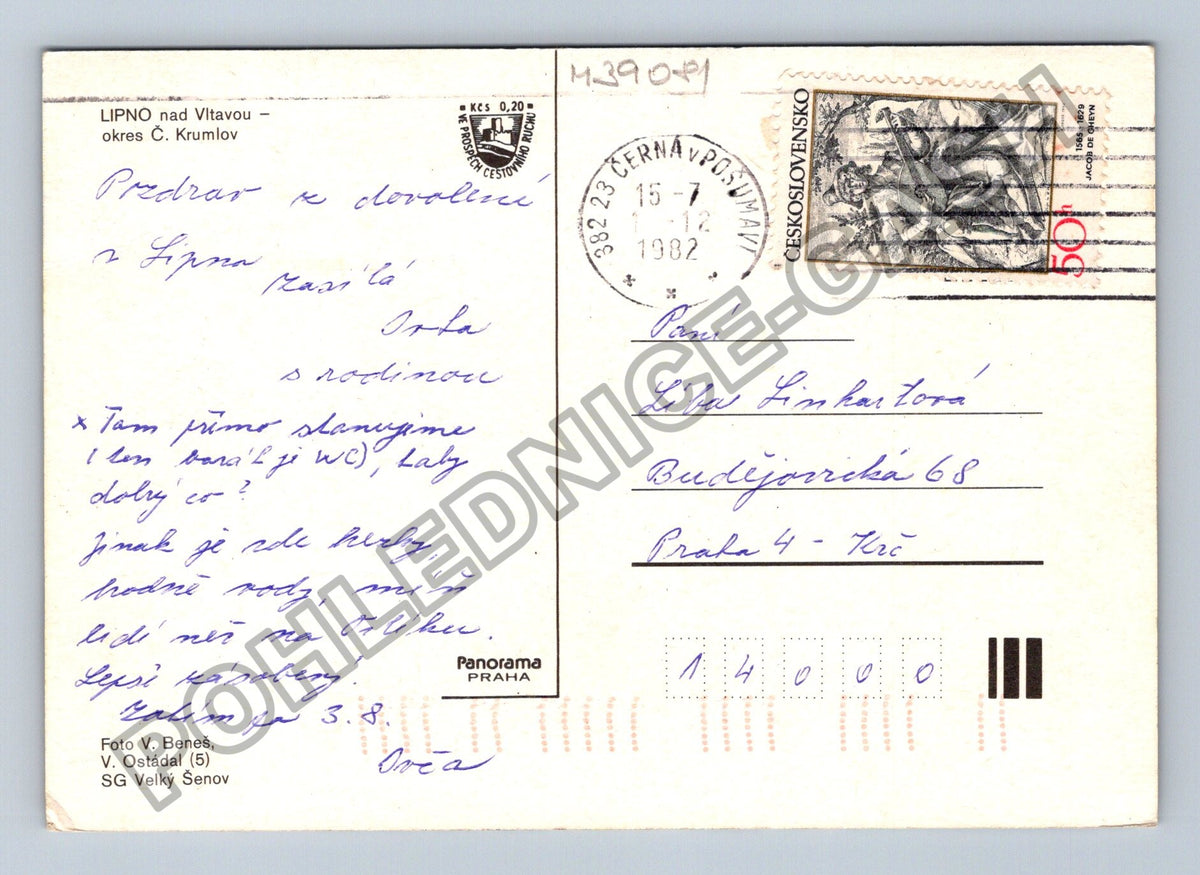 M39081
LIPNO nad Vltavou –
okres Č. Krumlov
KČS 0,20
VE PROSPĚCH CESTOVNÍHO RUCHU
Pozdrav z dovolené
z Lipna
zasílá
s rodinou
x Tam přímo stanujeme
(ten barák je WC),
dobrý co?
Jinak je zde hezky,
hodně vody, míň
lidí než na Orlíku.
Lepší zásobený.
Zatím pa 3.8.
Foto V. Beneš,
V. Ostádal (5)
SG Velký Šenov
Panorama
PRAHA
382 23 ČERNÁ v POŠUMAVÍ
15 -7
-12
1982
ČESKOSLOVENSKO
1565 - 1629
JACOB DE GHEYN
50h
Paní
Líba Linhartová
Budějovická 68
Praha 4 - Krč
14000
POHLEDNICE-G